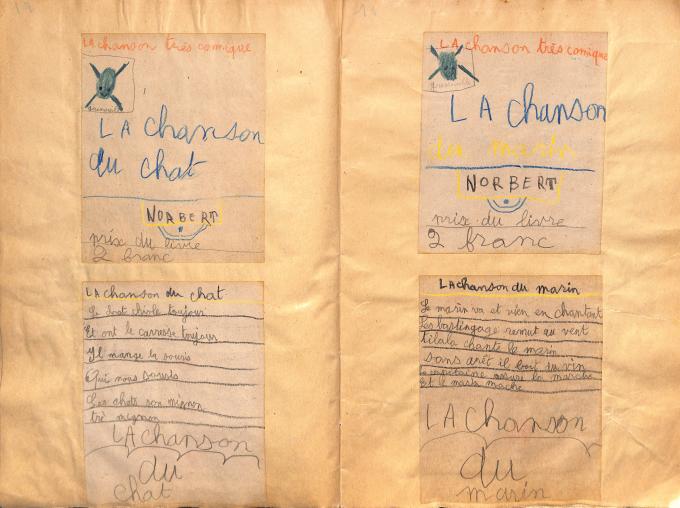 LA chanson très comique
grenouille
LA chanson
du chat
NORBERT
prix du livre
2 franc
LA chanson du chat
toujour
Et ont le caresse toujour
Il mange la souris
Qui nous souris
Les chats son mignon
très mignon
LA chanson
du
chat
LA chanson très comique
grenouille
LA chanson
du marin
NORBERT
prix du livre
2 franc
LA chanson du marin
Le marin va et vien en chantant
Les bastingage remut au vent
tilala chante le marin
sans arèt il boit du vin
le capitaine assure la marche
Et le marin mache
LA chanson
du
marin